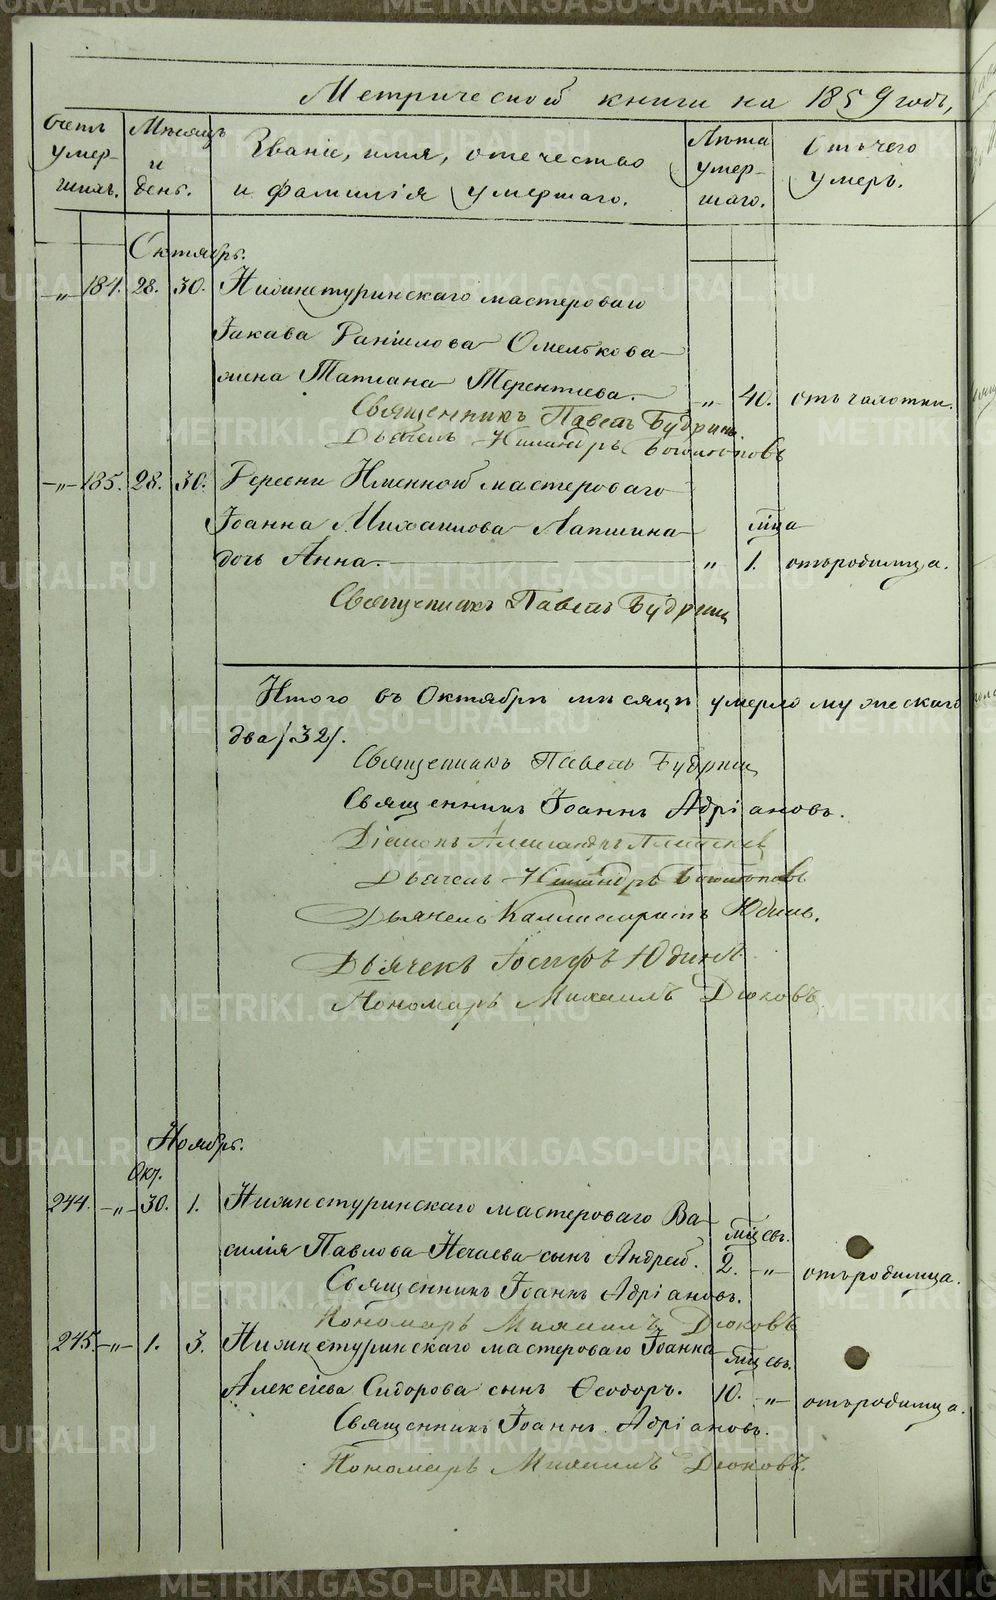 Метрической книги на 1859 годъ,
Счетъ умер-шихъ.
Мѣсяцъ и день.
Званіе, имя, отечество и фамилія умершаго.
Лѣта умер-шаго.
Отъ чего умеръ.
Октябрь.
„ 184. 28. 30. Нижнетуринскаго мастероваго
Іакава Данілова Омелькова
жена Татіана Терентіева. „ 40. отъ чахотки.
Священникъ Павелъ Будринъ.
Дьячекъ Никандръ Боголюповъ
„ 185. 28. 30. Деревни Именной мастероваго
Іоанна Михаилова Лапшина мѣца
дочь Анна. „ 1. отъ родимца.
Священникъ Павелъ Будринъ
Итого въ Октябрѣ мѣсяцѣ умерло мужескаго
два /32/.
Священникъ Павелъ Будринъ
Священникъ Іоаннъ Адріановъ.
Діаконъ Александръ
Дьячекъ Никандръ Боголюповъ
Дьячекъ Каллистратъ Юдинъ.
Дьячекъ Іосифъ Юдинъ.
Пономарь Михаилъ Дюковъ
Ноябрь.
Окт.
244. „ 30. 1. Нижнетуринскаго мастероваго Ва-
силія Павлова Нечаева сынъ Андрей. 2. мѣцевъ. „ отъ родимца.
Священникъ Іоаннъ Адріановъ.
Пономарь Михаилъ Дюковъ
245. „ 1. 3. Нижнетуринскаго мастероваго Іоанна мѣцевъ.
Алексіева Сидорова сынъ Ѳеодоръ. 10. „ отъ родимца.
Священникъ Іоаннъ Адріановъ.
Пономарь Михаилъ Дюковъ.
METRIKI.GASO-URAL.RU